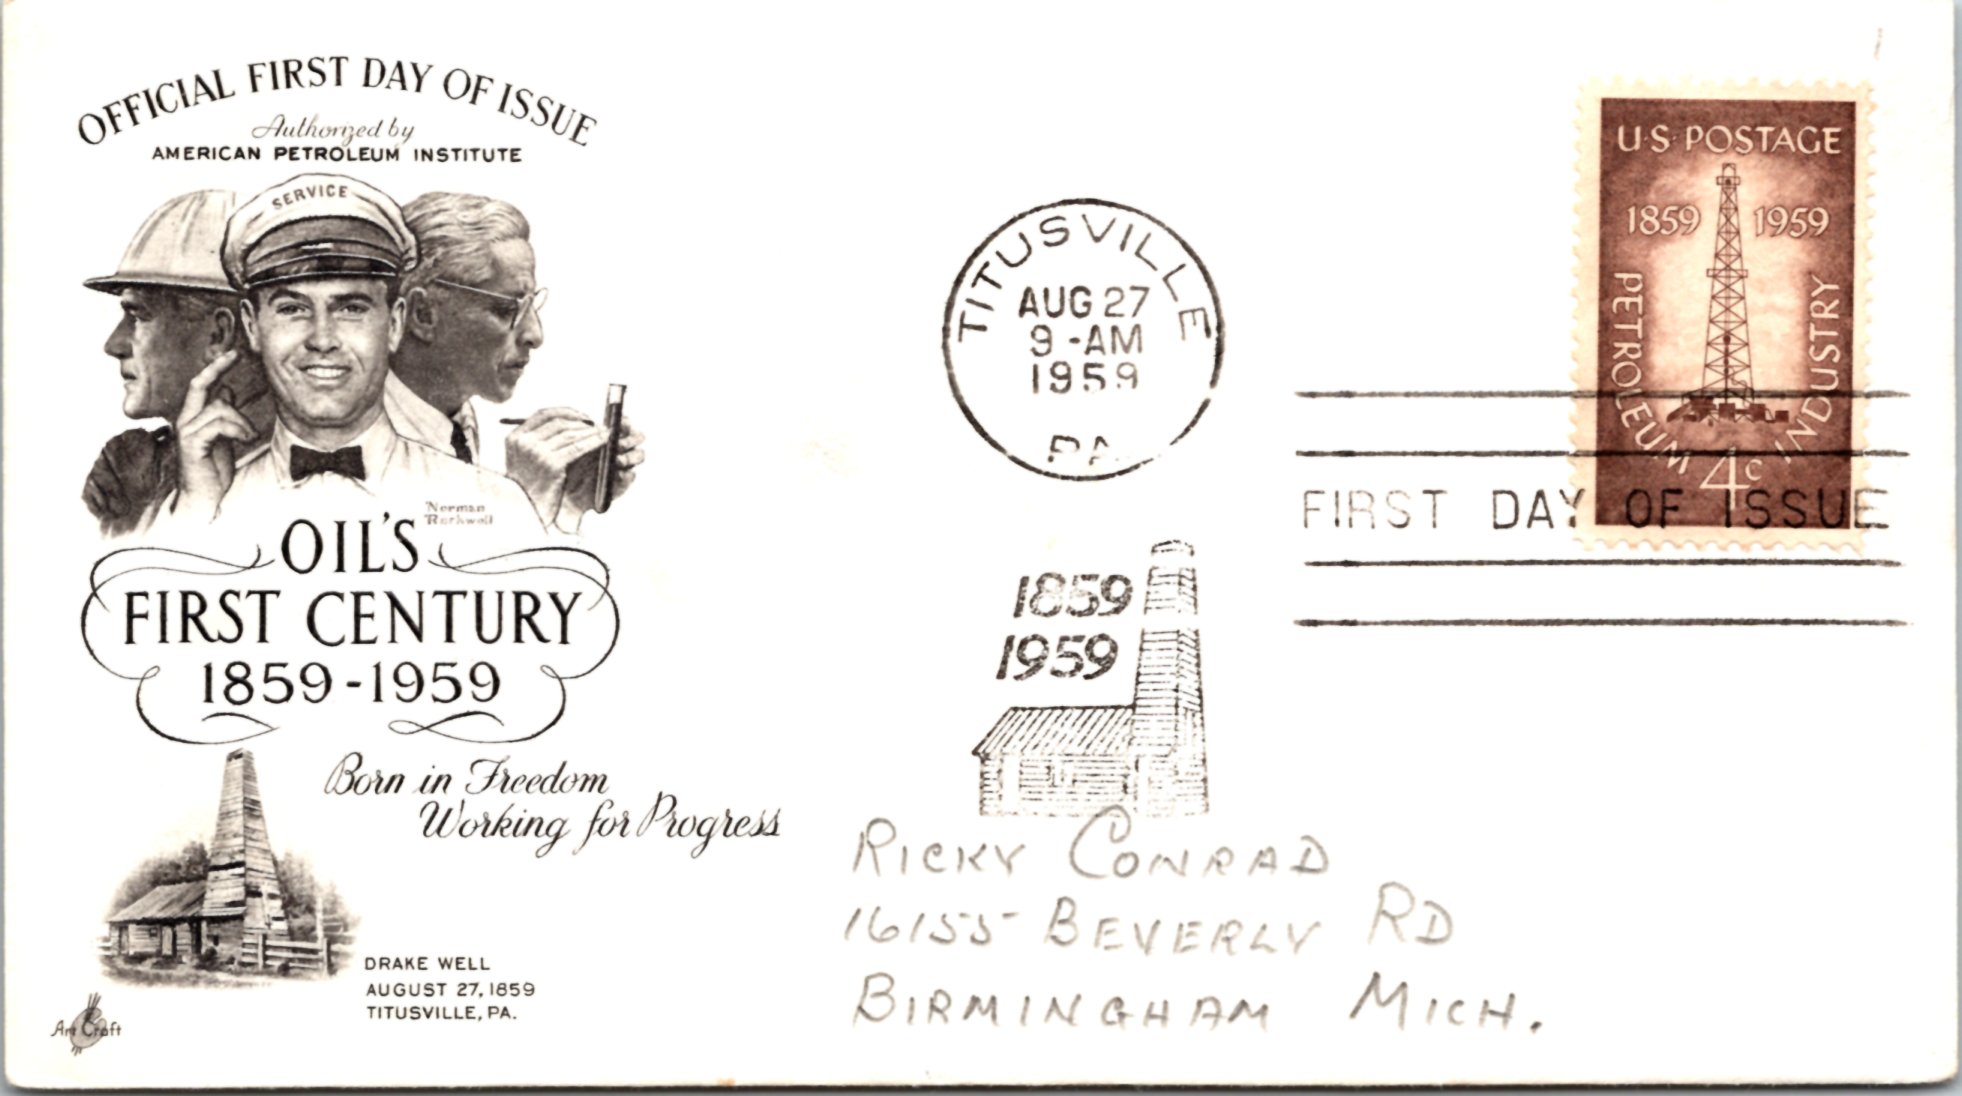 OFFICIAL FIRST DAY OF ISSUE
Authorized by
AMERICAN PETROLEUM INSTITUTE
SERVICE
Norman
Rockwell
OIL'S
FIRST CENTURY
1859-1959
Born in Freedom
Working for Progress
DRAKE WELL
AUGUST 27, 1859
TITUSVILLE, PA.
Art Craft
TITUSVILLE
AUG 27
9-AM
1959
PA
1859
1959
U.S. POSTAGE
1859 1959
PETROLEUM INDUSTRY
4c
FIRST DAY OF ISSUE
RICKY CONRAD
16155 BEVERLY RD
BIRMINGHAM MICH.